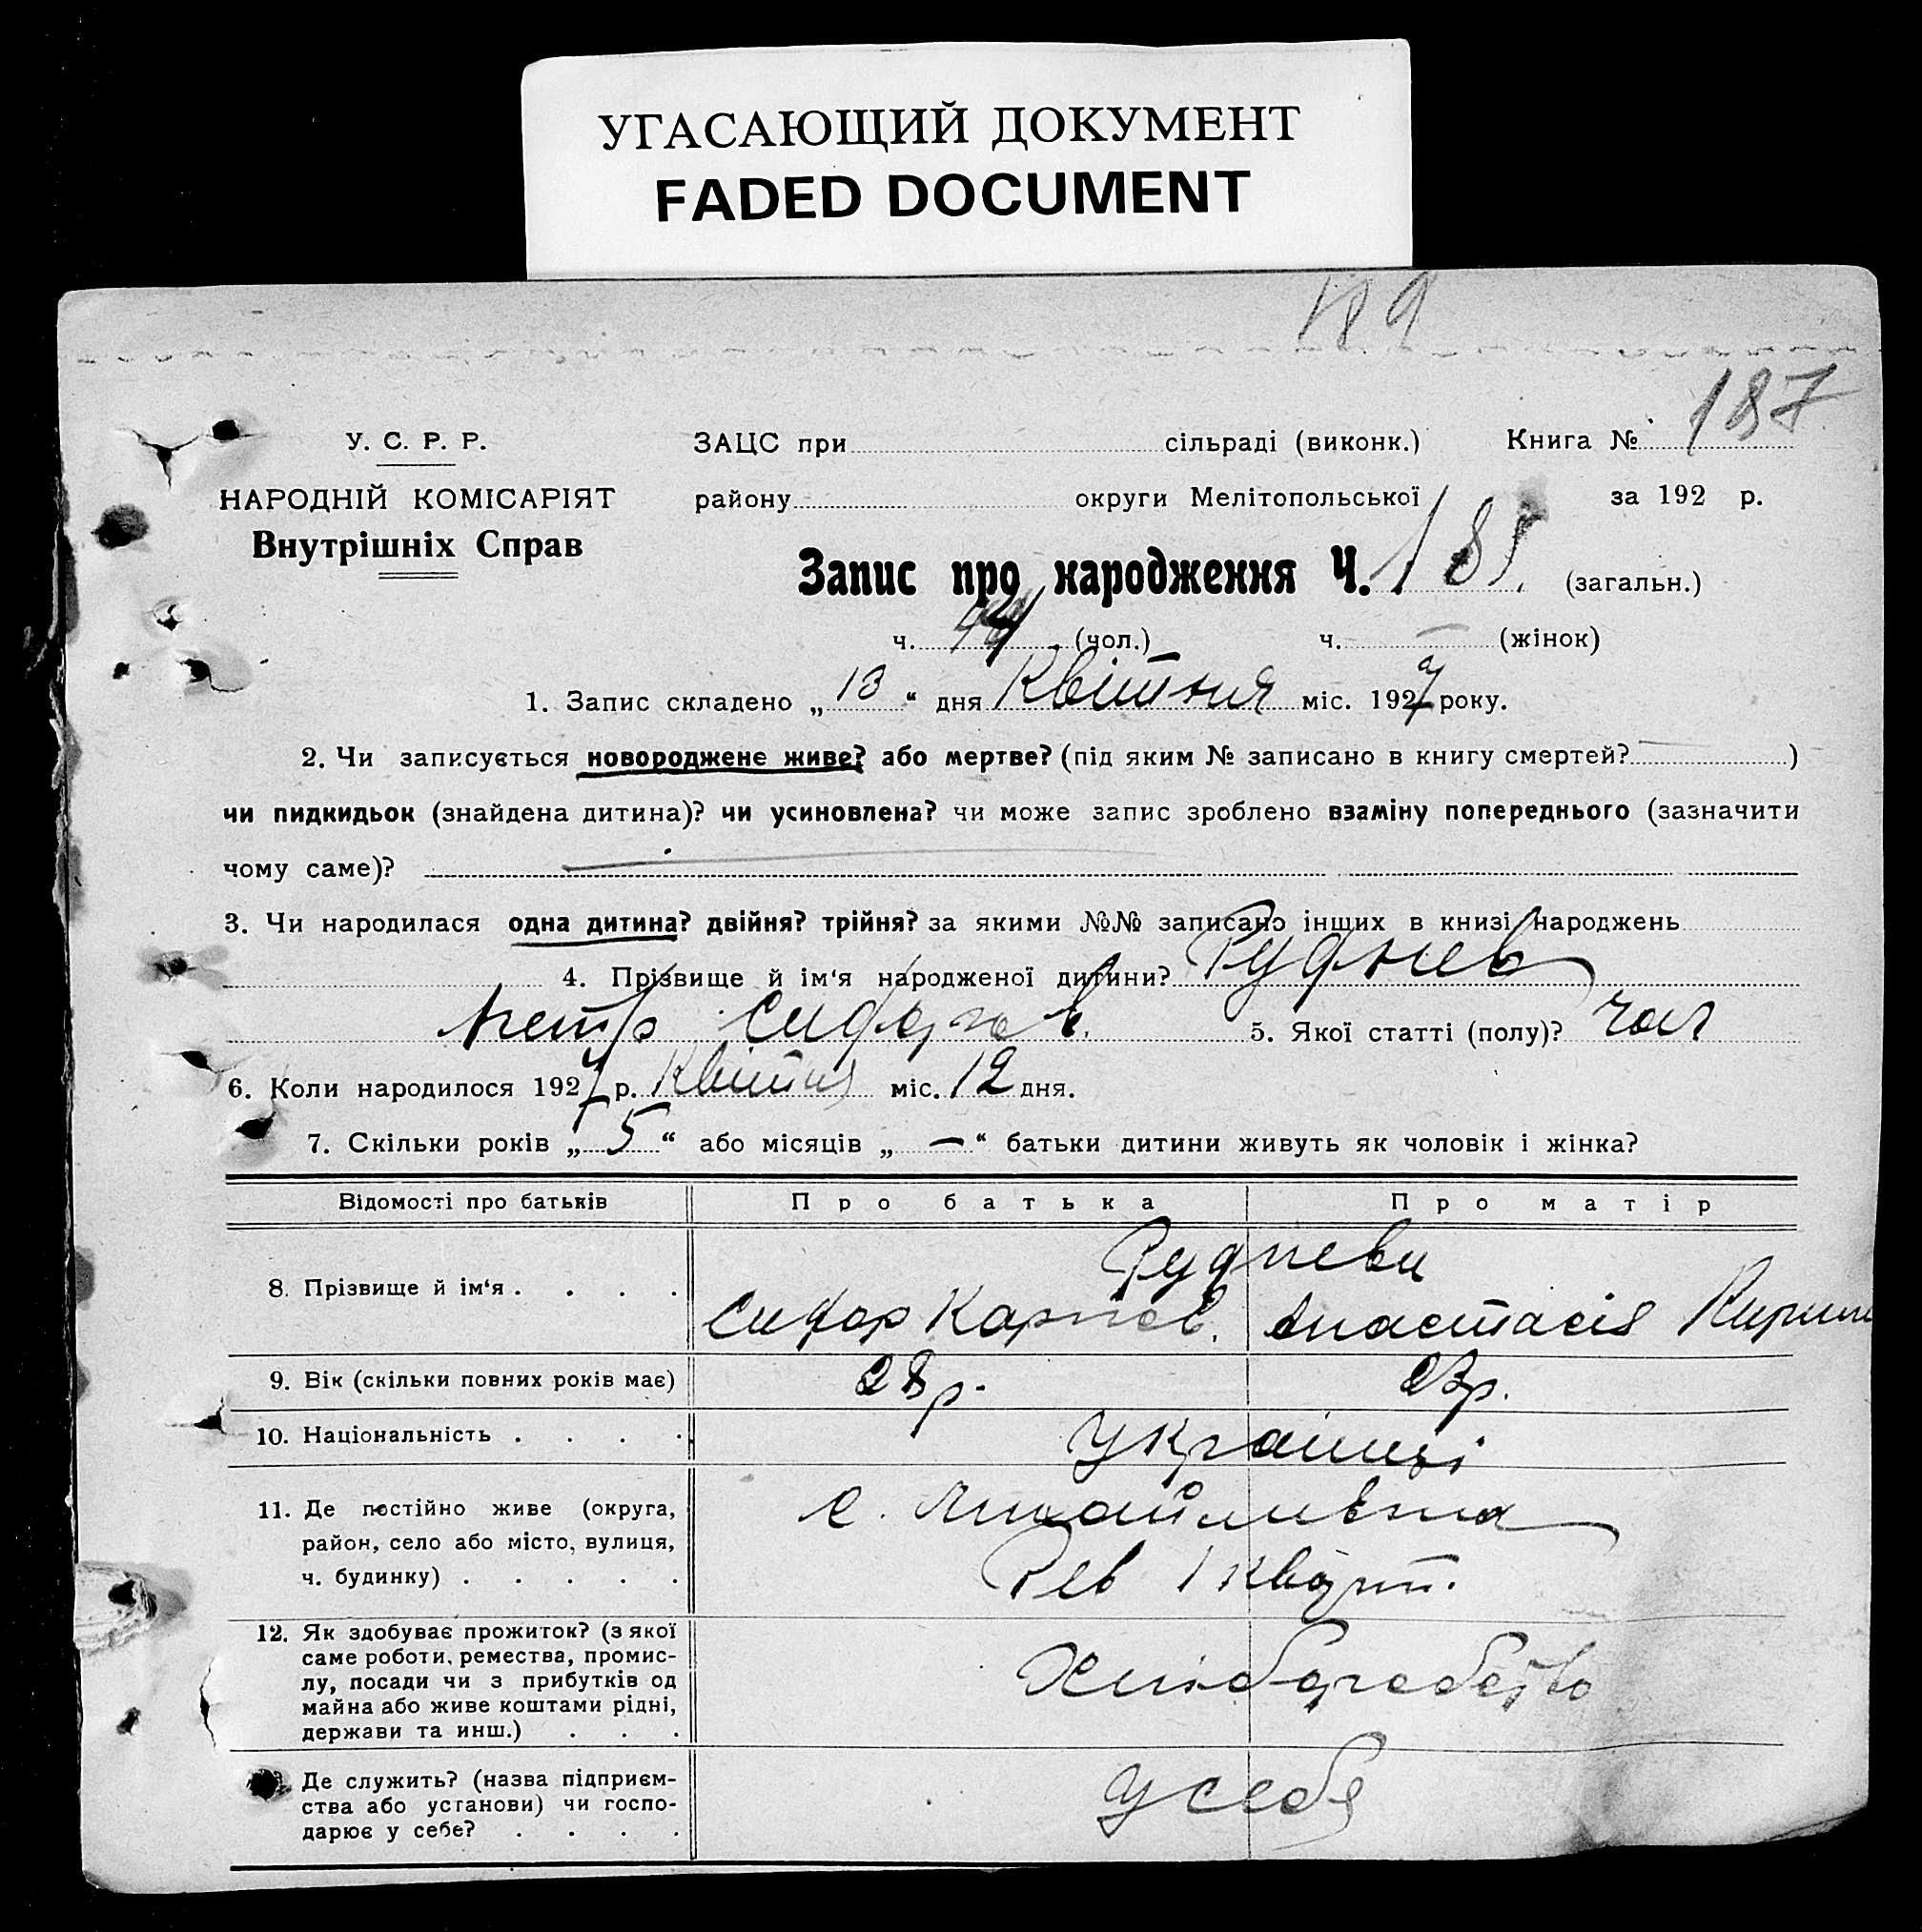 УГАСАЮЩИЙ ДОКУМЕНТ
FADED DOCUMENT
189
187
У. С. Р. Р. ЗАЦС при сільраді (виконк.) Книга №
НАРОДНІЙ КОМІСАРІЯТ району округи Мелітопольської за 192 р.
Внутрішніх Справ
Запис про народження Ч. (загальн.)
ч. 44 (чол.) ч. — (жінок)
1. Запис складено „13“ дня Квітня міс. 1927 року.
2. Чи записується новороджене живе? або мертве? (під яким № записано в книгу смертей? )
чи пидкидьок (знайдена дитина)? чи усиновлена? чи може запис зроблено взаміну попереднього (зазначити
чому саме)?
3. Чи народилася одна дитина? двійня? трійня? за якими №№ записано інших в книзі народжень
4. Прізвище й ім‘я народженої дитини? Руднев
Петр Сидоров. 5. Якої статті (полу)? чол
6. Коли народилося 1927 р. Квітня міс. 12 дня.
7. Скільки років „5“ або місяців „—“ батьки дитини живуть як чоловік і жінка?
Відомості про батьків Про батька Про матір
Рудневи
8. Прізвище й ім‘я . . . . Сидор Карпов. Анастасія
9. Вік (скільки повних років має) 28 р. 23 р.
10. Національність . . . . Українці
11. Де постійно живе (округа, с. Михайливка
район, село або місто, вулиця,
ч. будинку) . . . . . Рев 1 кварт.
12. Як здобуває прожиток? (з якої
саме роботи, ремества, промис-
лу, посади чи з прибутків од Хліборобство
майна або живе коштами рідні,
держави та инш.) . . .
Де служить? (назва підприєм-
ства або установи) чи госпо- У себя
дарює у себе? . . . .